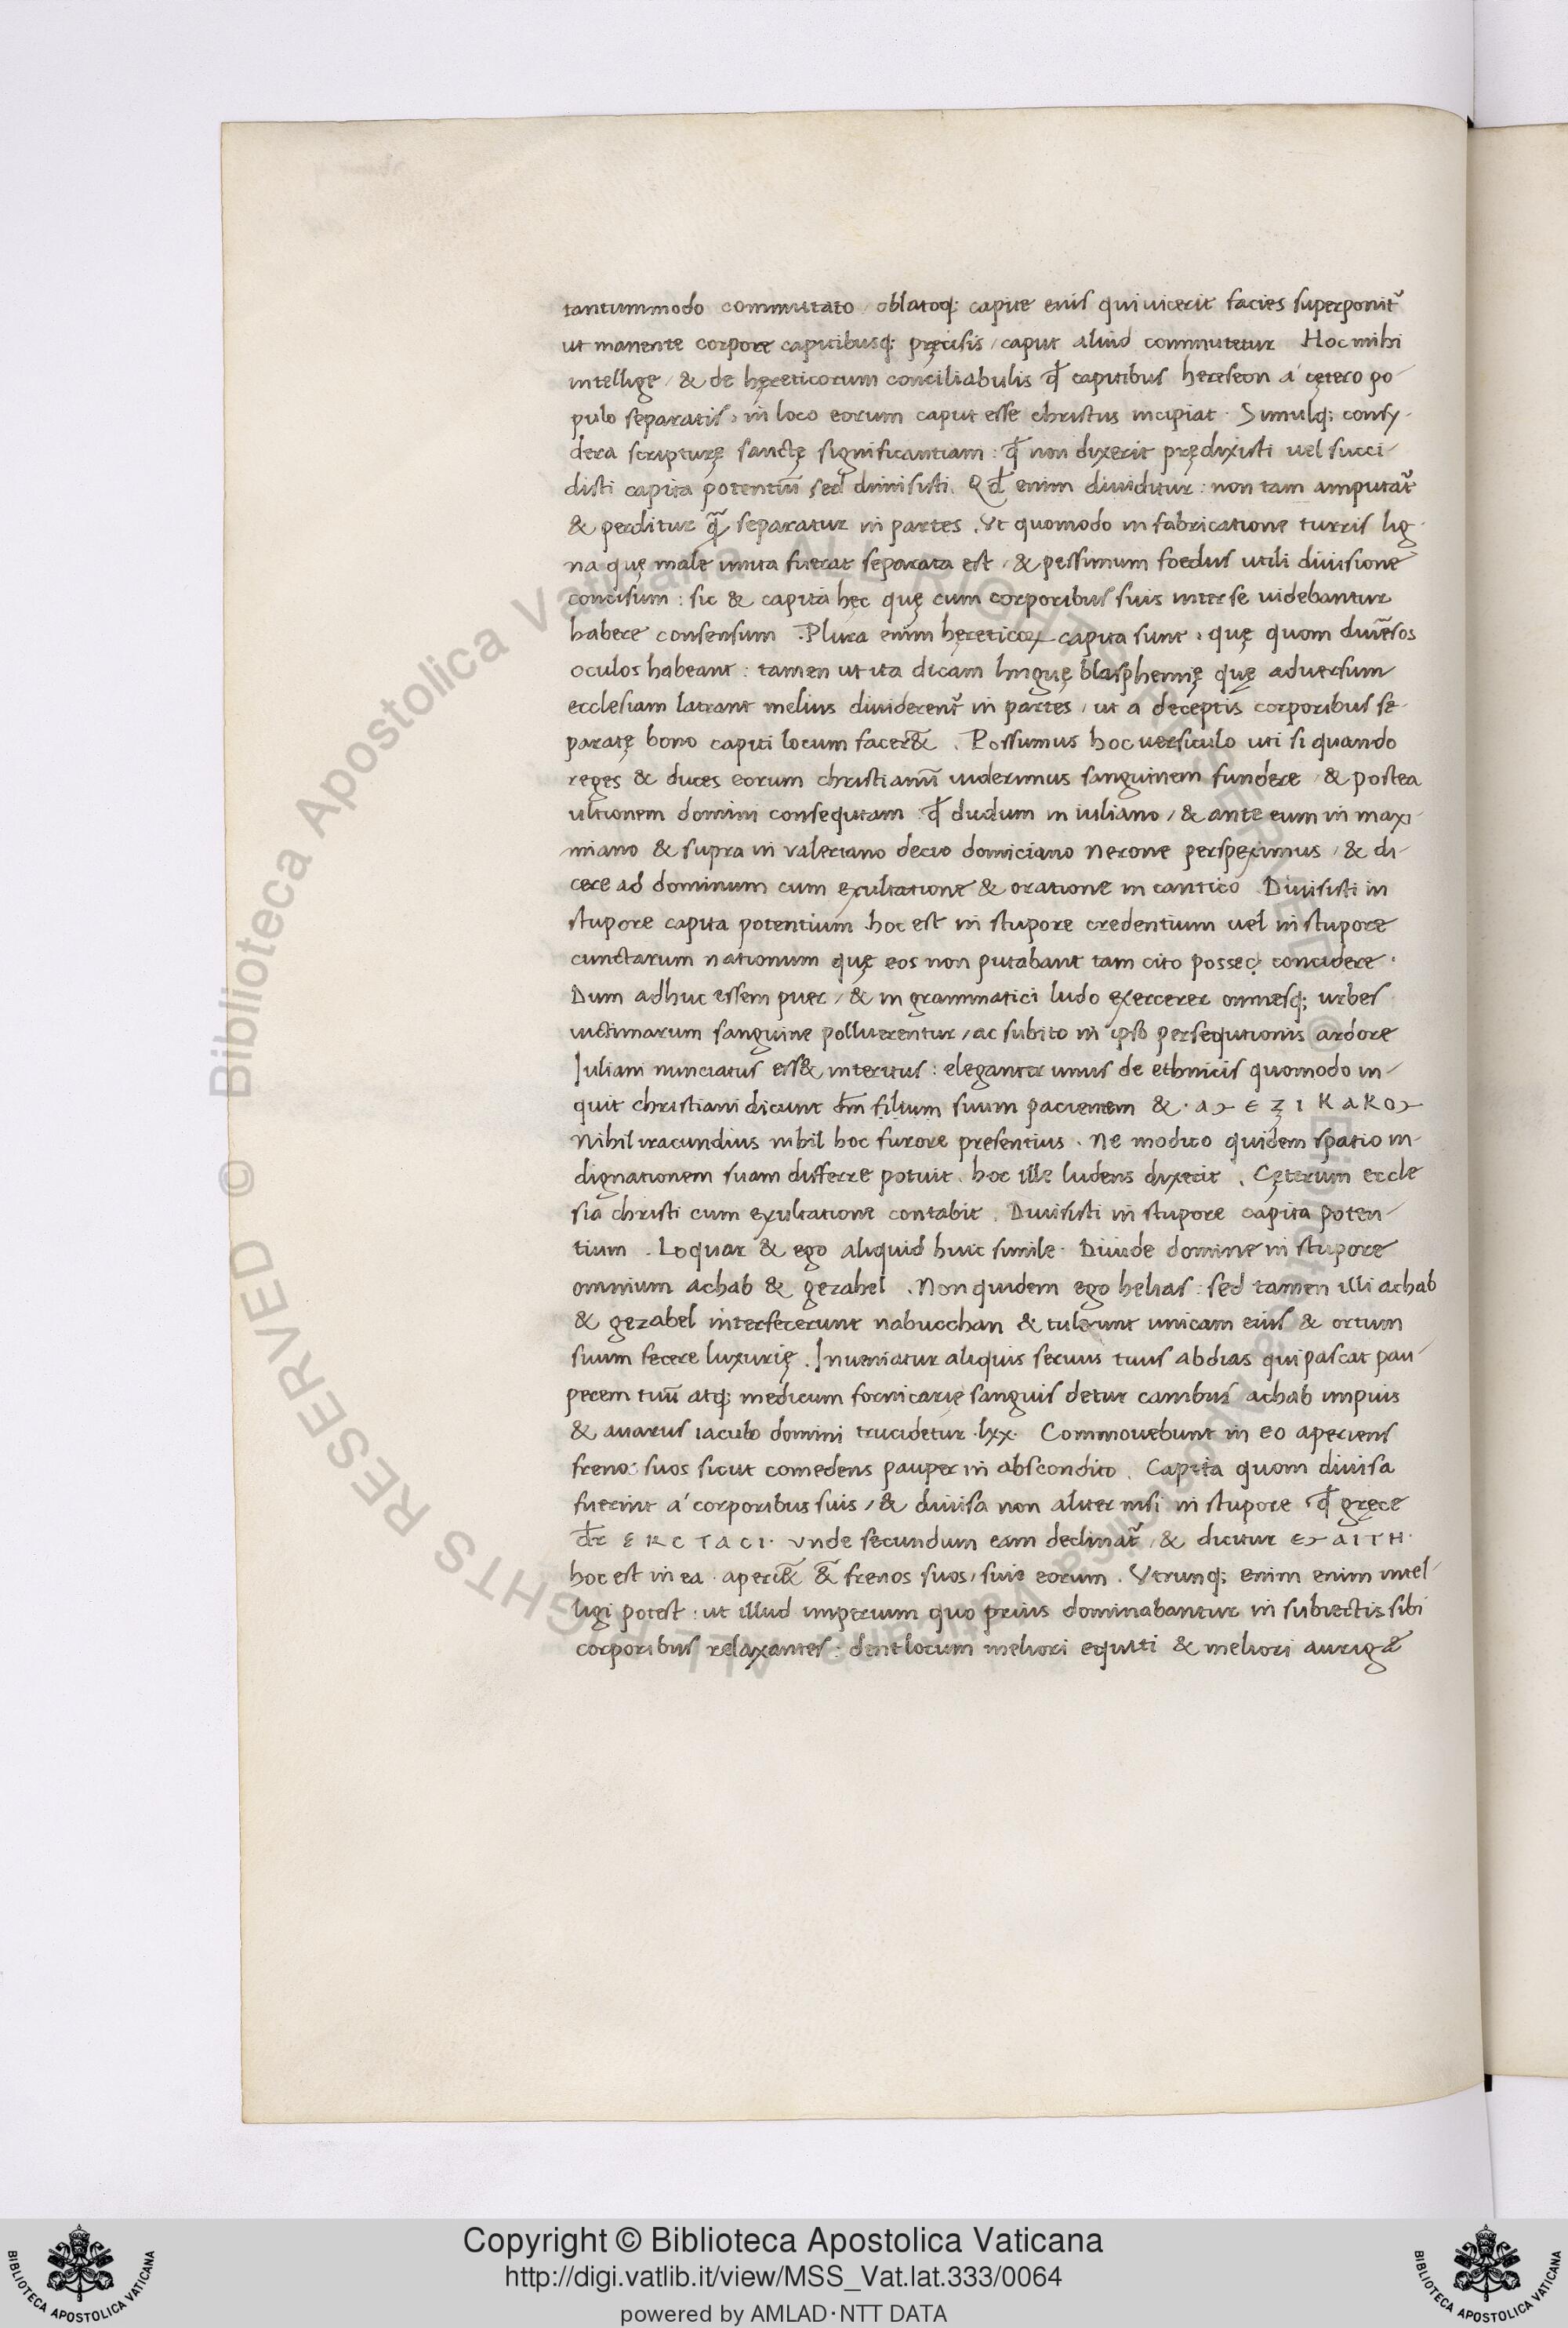 tantummodo commutato / oblatoq; capite eius qui uicerit facies superponit᷑
ut manente corpore capitibusq; pręcisis / caput aliud commutetur Hoc mihi
intellige / & de hęreticorum conciliabulis qđ capitibus hereseon a´ cętero po-
pulo separatis, in loco eorum caput esse christus incipiat . Simulq; consy-
dera scripturę sanctę significantiam : qđ non dixerit prędixisti uel succi-
disti capita potentiũ sed diuisisti. Qđ enim diuiditur : non tam amputat᷑
& perditur quã separatur in partes . Vt quomodo in fabricatione turris lig-
na quę male iuncta fuerat separata est / & pessimum foedus utili diuisione
concisum : sic & capita hęc quę cum corporibus suis inter se uidebantur
habere consensum . Plura enim hęreticoꝝ capita sunt , quę quom diuẽsos
oculos habeant : tamen ut ita dicam linguę blasphemię quę aduersum
ecclesiam latrant melius diuiderent᷑ in partes / ut a deceptis corporibus se-
paratę bono capiti locum facer&̃ . Possumus hoc uersiculo uti si quando
reges & duces eorum christianũ uiderimus sanguinem fundere / & postea
ultionem domini consequtam qđ dudum in iuliano / & ante eum in maxi-
miano & supra in valeriano decio domiciano nerone perspeximus / & di-
cere ad dominum cum exultatione & oratione in cantico . Diuisisti in
stupore capita potentium hoc est in stupore credentium uel in stupore
cunctarum nationum quę eos non putabant tam cito posseç concidere .
Dum adhuc essem puer / & in grammatici ludo exercerer omnesq; urbes
uictimarum sanguine polluerentur / ac subito in ipso persequtionis ardore
Iuliani nunciatus ess& interitus : eleganter unus de ethnicis quomodo in-
quit christiani dicunt dm̃ filium suum pacienem & .
Nihil iracundius nihil hoc furore presentius . Ne modico quidem spatio in-
dignationem suam differre potuit . hoc ille ludens dixerit . Cęterum eccle
sia christi cum exultatione contabit . Diuisisti in stupore capita poten-
tium . Loquar & ego aliquid huic simile . Diuide domine in stupore
omnium achab & gezabel . Non quidem ego helias : sed tamen illi achab
& gezabel interfecerunt nabucchan & tulerunt unicam eius & ortum
suum fecere luxurię . Inueniatur aliquis seruus tuus abdias qui pascat pau-
perem tuũ atq; medicum fornicarię sanguis detur canibus achab impius
& auarus iaculo domini trucidetur .lxx. Commouebunt in eo aperiens
freno suos sicut comedens pauper in abscondito . Capita quom diuisa
fuerint a´ corporibus suis / & diuisa non aliter nisi in stupore qđ gręce
dr̃ ERCTACI . vnde secundum eam declinat᷑ & dicitur
hoc est in ea . aperi&̃ &̃ frenos suos / siue eorum . Vtrunq; enim enim intel-
ligi potest : ut illud imperium quo prius dominabantur in subiectis sibi
corporibus relaxantes : dent locum meliori equiti & meliori aurigæ
Copyright © Biblioteca Apostolica Vaticana
http://digi.vatlib.it/view/MSS_Vat.lat.333/0064
powered by AMLAD·NTT DATA
BIBLIOTECA APOSTOLICA VATICANA
BIBLIOTECA APOSTOLICA VATICANA
© Biblioteca Apostolica Vaticana ALL RIGHTS RESERVED
© Biblioteca Apostolica Vaticana ALL RIGHTS RESERVED